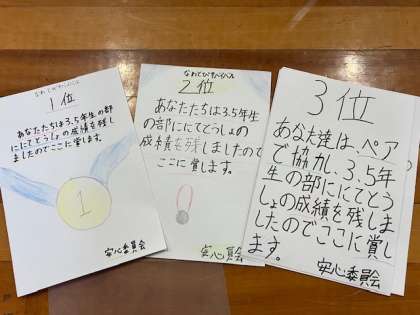 なわとびサバイバル
1位
あなたたちは3.5年生の部
ににてとうしょの成績を残し
ましたのでここに賞します。
1
安心委員会
なわとびサバイバル
2位
あなたたちは3.5年生
の部ににてとうしょの
成績を残しましたので
ここに賞します。
安心員会
3位
あなた達は、ペア
で協力、3.5年
生の部ににてとう
しょの成績を残しま
したのでここに賞し
ます。
安心委員会